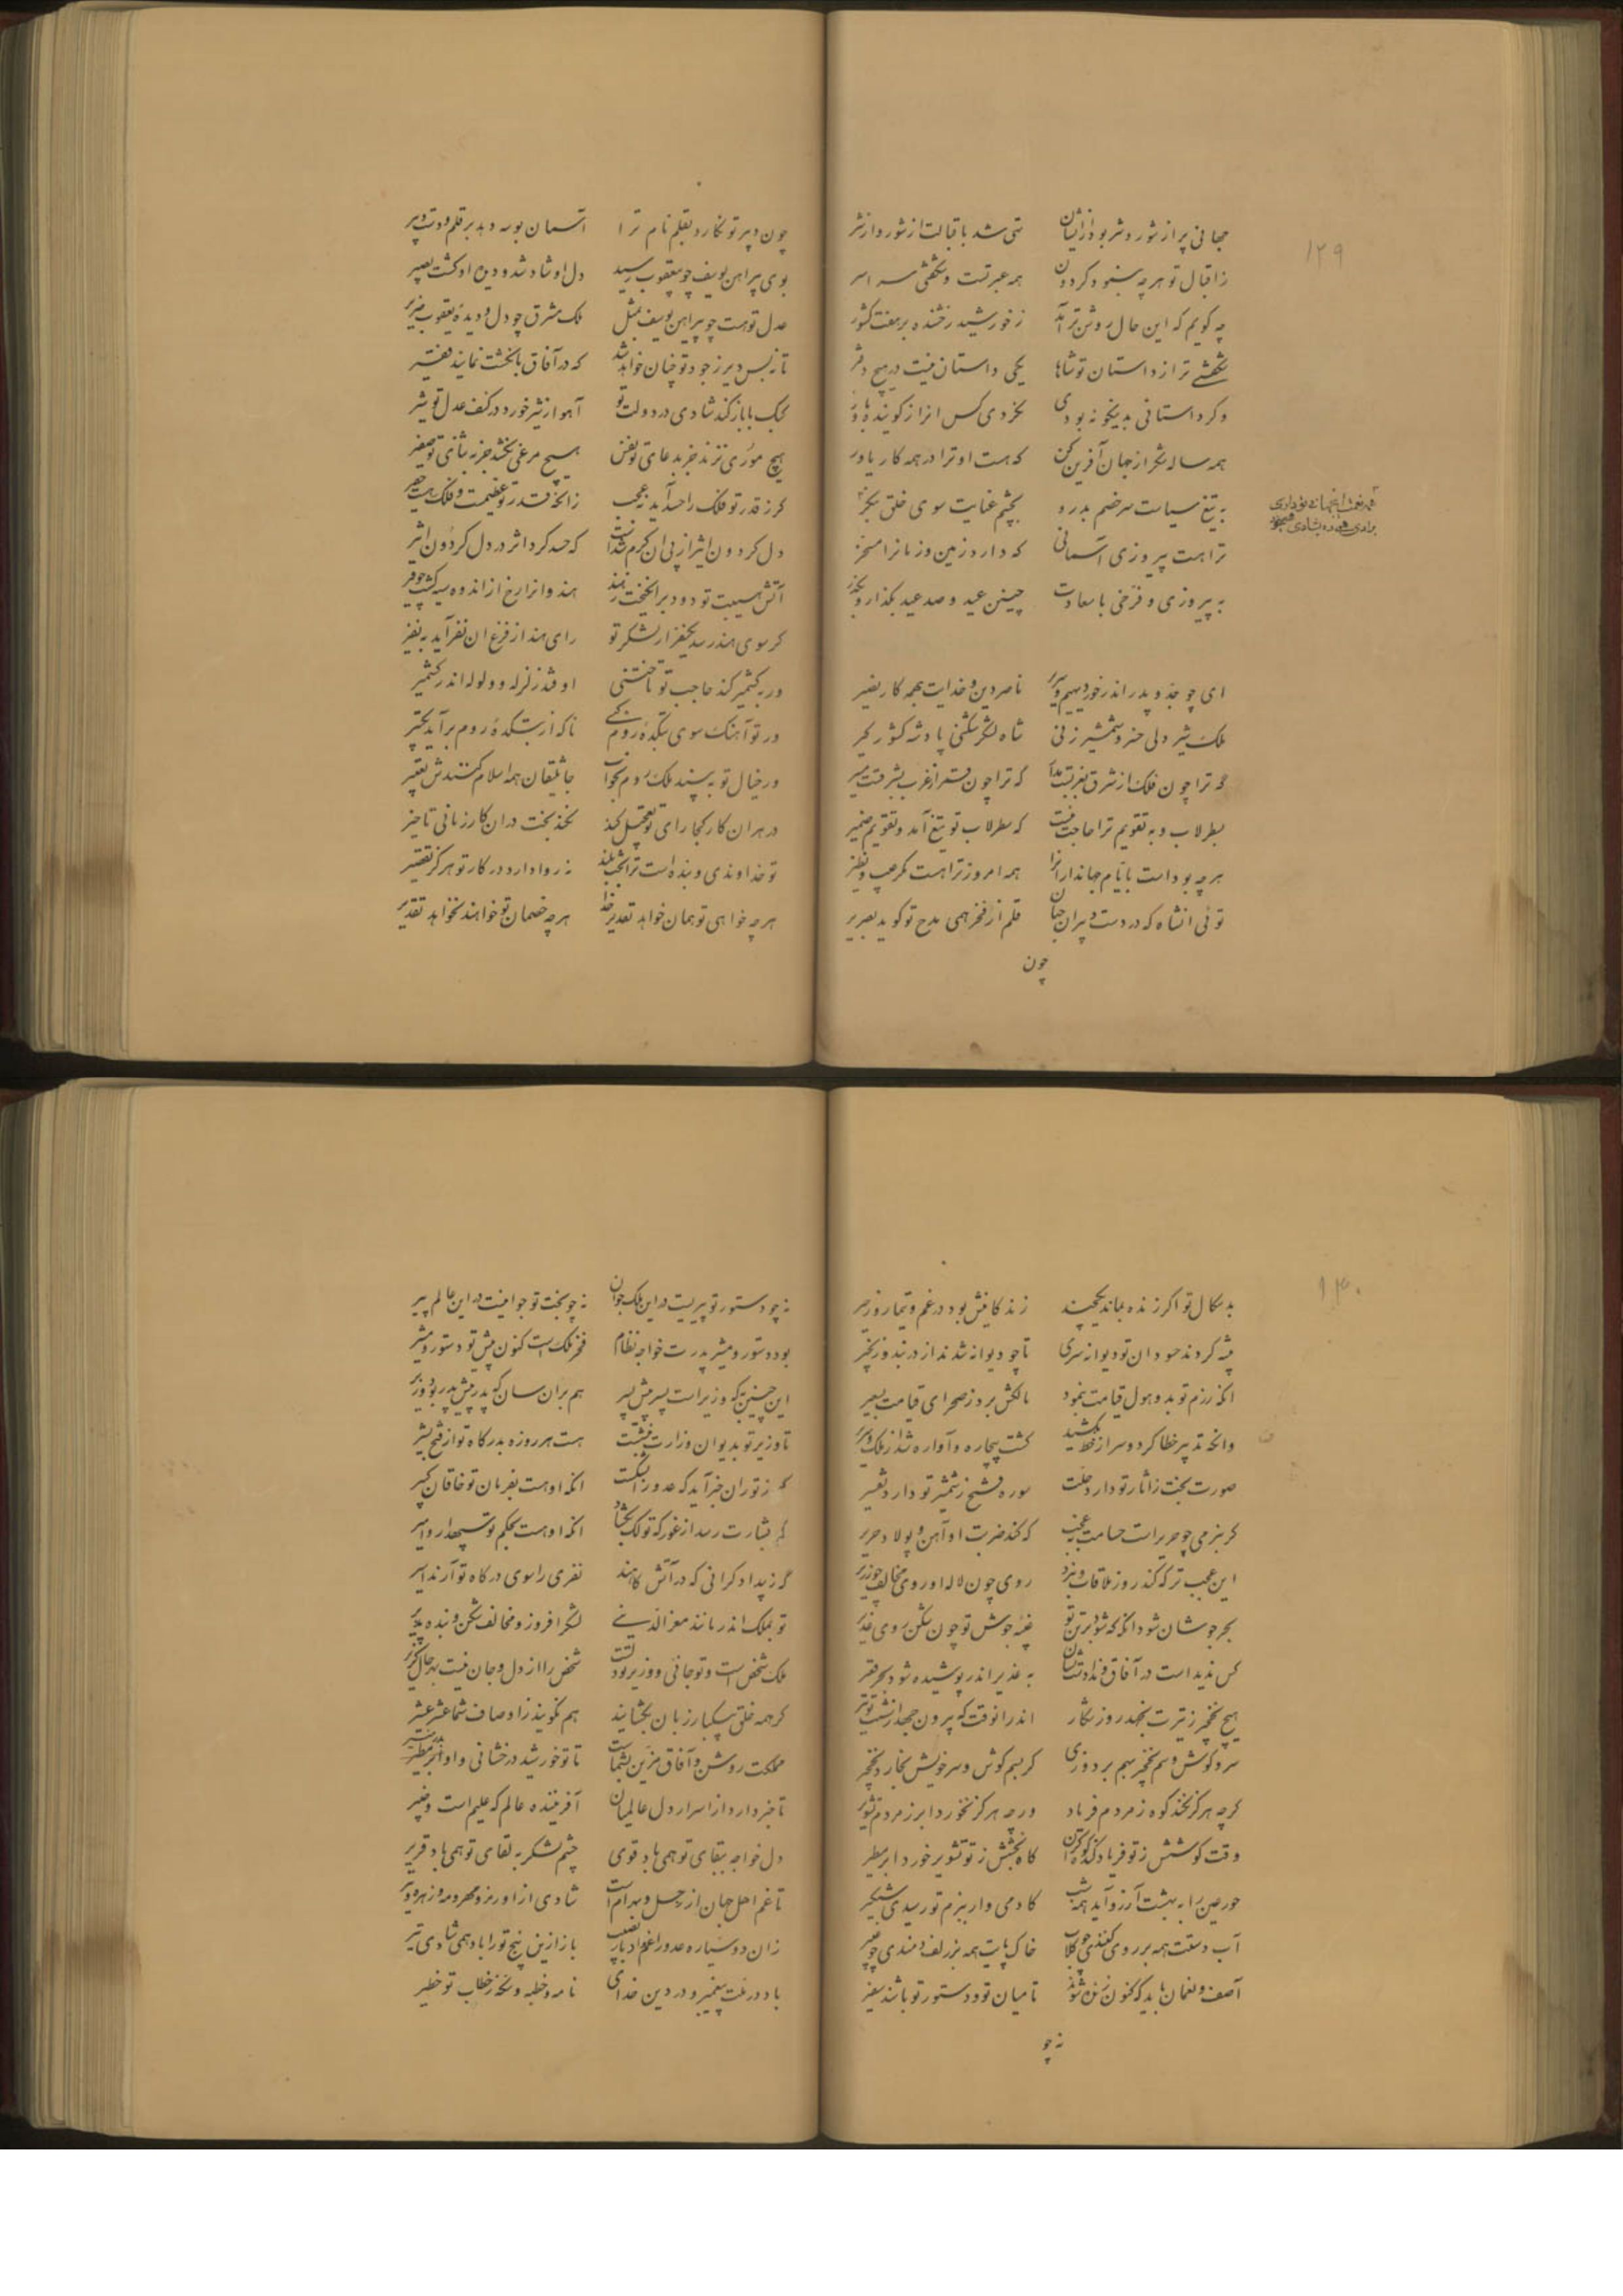 ۱۲۹
جهانی پر از شور و شر بود ازیشان تهی شد باقبالت از شور و از شر
ز اقبال تو هر چه بشنود گردون همه عبرتست و شگفتی سراسر
چه گویم که این حال روشن‌تر آمد ز خورشید رخشنده بر هفت کشور
شگفتی تر از داستان تو شاها یکی داستان نیست در هیچ دفتر
وگر داستانی بدینگونه بودی نکردی کس آنرا ز گوینده باور
همه ساله شکر از جهان آفرین کن که هست او ترا در همه کار یاور
به تیغ سیاست سر خصم بدرو بچشم عنایت سوی خلق بنگر
همه نعمت اینجهانی تو داری
برادی همی ده بشادی همیخور
ترا هست پیروزی آسمانی که دارد زمین و زمانرا مسخر
به پیروزی و فرخی با سعادت چنین عید و صد عید بگذار و بگذر
ای چو جد و پدر اندر خور دیهیم و سریر ناصر دین و خدایت بهمه کار نصیر
ملک شیر دلی خسرو شمشیر زنی شاه لشکر شکنی پادشه کشور گیر
گه ترا چون فلک از شرق بغربست مدار گه ترا چون قمر از غرب بشرقست مسیر
بسطرلاب و به تقویم ترا حاجت نیست که سطرلاب تو تیغ آمد و تقویم ضمیر
هر چه بوداست بایام جهانداران را همه امروز ترا هست مگر عیب و نظیر
توئی آنشاه که در دست دبیران جهان قلم از فخر همی مدح تو گوید بصریر
چون
چون دبیر تو نگارد بقلم نام ترا آسمان بوسه دهد بر قلم و دست دبیر
بوی پیراهن یوسف چو بیعقوب رسید دل او شاد شد و دیده او گشت بصیر
عدل تو هست چو پیراهن یوسف بمثل ملک مشرق چو دل و دیده یعقوب ضریر
تا نه بس دیر ز جود تو چنان خواهد شد که در آفاق بانگشت نمایند فقیر
کبک با باز کند شادی در دولت تو آهو از شیر خورد در کنف عدل تو شیر
هیچ موری نزند جز بدعای تو نفس هیچ مرغی نکشد جز به ثنای تو صفیر
گر ز قدر تو فلک را حسد آید نه عجب زانکه قدر تو عظیمست و فلک هست حقیر
دل گردون اثیر از پی آن گرم شدست که حسد کرد اثر در دل گردون اثیر
آتش هیبت تو دود برانگیخت ز هند هندوانرا رخ از اندوه سیه گشت چو قیر
گر سوی هند رسد یکنفر از لشکر تو رای هند از فزع آن نفر آید به نفیر
ور به کشمیر کند حاجب تو تاختنی اوفتد زلزله و ولوله اندر کشمیر
ور تو آهنگ سوی بتکده روم کنی ناگه از بتکده روم برآید تکبیر
ور خیال تو به بیند ملک روم بخواب جاثلیقان همه اسلام کنندش تعبیر
در هر آن کار کجا رای تو تعجیل کند نکند بخت در آن کار زمانی تاخیر
تو خداوندی و بنده است ترا بخت بلند نه روا دارد در کار تو هرگز تقصیر
هر چه خواهی تو همان خواهد تقدیر خدا هر چه خصمان تو خواهند نخواهد تقدیر
۱۳۰
بدسگال تو اگر زنده بماند یکچند زندگانیش بود در غم و تیمار و زحیر
پیشه کردند حسودان تو دیوانه سری تا چو دیوانه شدند از در بند و زنجیر
آنکه رزم تو بدو هول قیامت بنمود مالکش برد ز صحرای قیامت بسعیر
وانکه تدبیر خطا کرد و سر از خط بکشید گشت بیچاره و آواره شد از ملک و سریر
صورت بخت ز آثار تو دارد حلیت سوره فتح ز شمشیر تو دارد تفسیر
گر بنرمی چو حریر است حسامت نه عجب که کند ضربت او آهن و پولاد حریر
این عجب تر که کند روز ملاقات و نبرد روی چون لاله او روی مخالف چو زریر
بحر جوشان شود آنگه که شود بر تن تو غیبه جوش تو چون شکن روی غدیر
کس ندیداست در آفاق فزون از تن تو به غدیر اندر پوشیده شود بحر قعیر
هیچ نخجیر ز تیرت نجهد روز شکار اندر آنوقت که بیرون جهد از شست تو تیر
سر و گوش و سم نخجیر بهم بر دوزی گر بسم گوش و سر خویش بخارد نخجیر
گرچه هرگز نکند کوه ز مردم فریاد ورچه هرگز نخورد ابر ز مردم تشویر
وقت کوشش ز تو فریاد کند کوه گران گاه بخشش ز تو تشویر خورد ابر مطیر
حور عین را به بهشت آرزو آید همه شب کادمی وار ببزم تو رسیدی شبگیر
آب دستت همه بر روی کنندی چو گلاب خاک پایت همه بر زلف زدندی چو عبیر
آصف و لقمان باید که کنون زنده شوند تا میان تو و دستور تو باشند سفیر
نه چو
نه چو دستور تو پیریست در این ملک جوان نه چو بخت تو جوانیست در این عالم پیر
بود دستور و مشیر پدرت خواجه نظام فخر ملک است کنون پیش تو دستور و مشیر
این چنین که وزیر است پسر پیش پسر هم بر آن سان که پدر پیش پدر بود وزیر
تا وزیر تو بدیوان وزارت بنشست هست هر روزه بدرگاه تو از فتح بشیر
گه ز توران خبر آید که عدو را بشکست آنکه او هست بفرمان تو خاقان کبیر
گه بشارت رسد از غور که تو لک بگشاد آنکه او هست بحکم تو سپهدار و امیر
گه ز بیدادگرانی که در آتش کاهند نفری را سوی درگاه تو آرند اسیر
تو بملک اندر مانند معزالدینی لشکر افروز و مخالف شکن و بنده پذیر
ملک شخص است و تو جانی و وزیر تو دلست شخص را از دل و جان نیست بهر حال گزیر
گر همه خلق بیکبار زبان بگشایند هم نگویند ز اوصاف شما عشر عشیر
مملکت روشن و آفاق مزین بشماست تا تو خورشید درخشانی و او ابر مطیر
تا خبر دارد از اسرار دل عالمیان آفریننده عالم که علیم است و خبیر
دل خواجه ببقای تو همی باد قوی چشم لشکر به لقای تو همی باد قریر
تا غم اهل جهان از زحل و بهرام است شادی از اورمزد و مهر و مه و زهره و تیر
زان دو سیاره عدو را غم و ادبار نصیب باز ازین پنج ترا باد همی شادی تیر
باد در ملت پیغمبر و در دین خدای نامه و خطبه و سکه ز خطاب تو خطیر